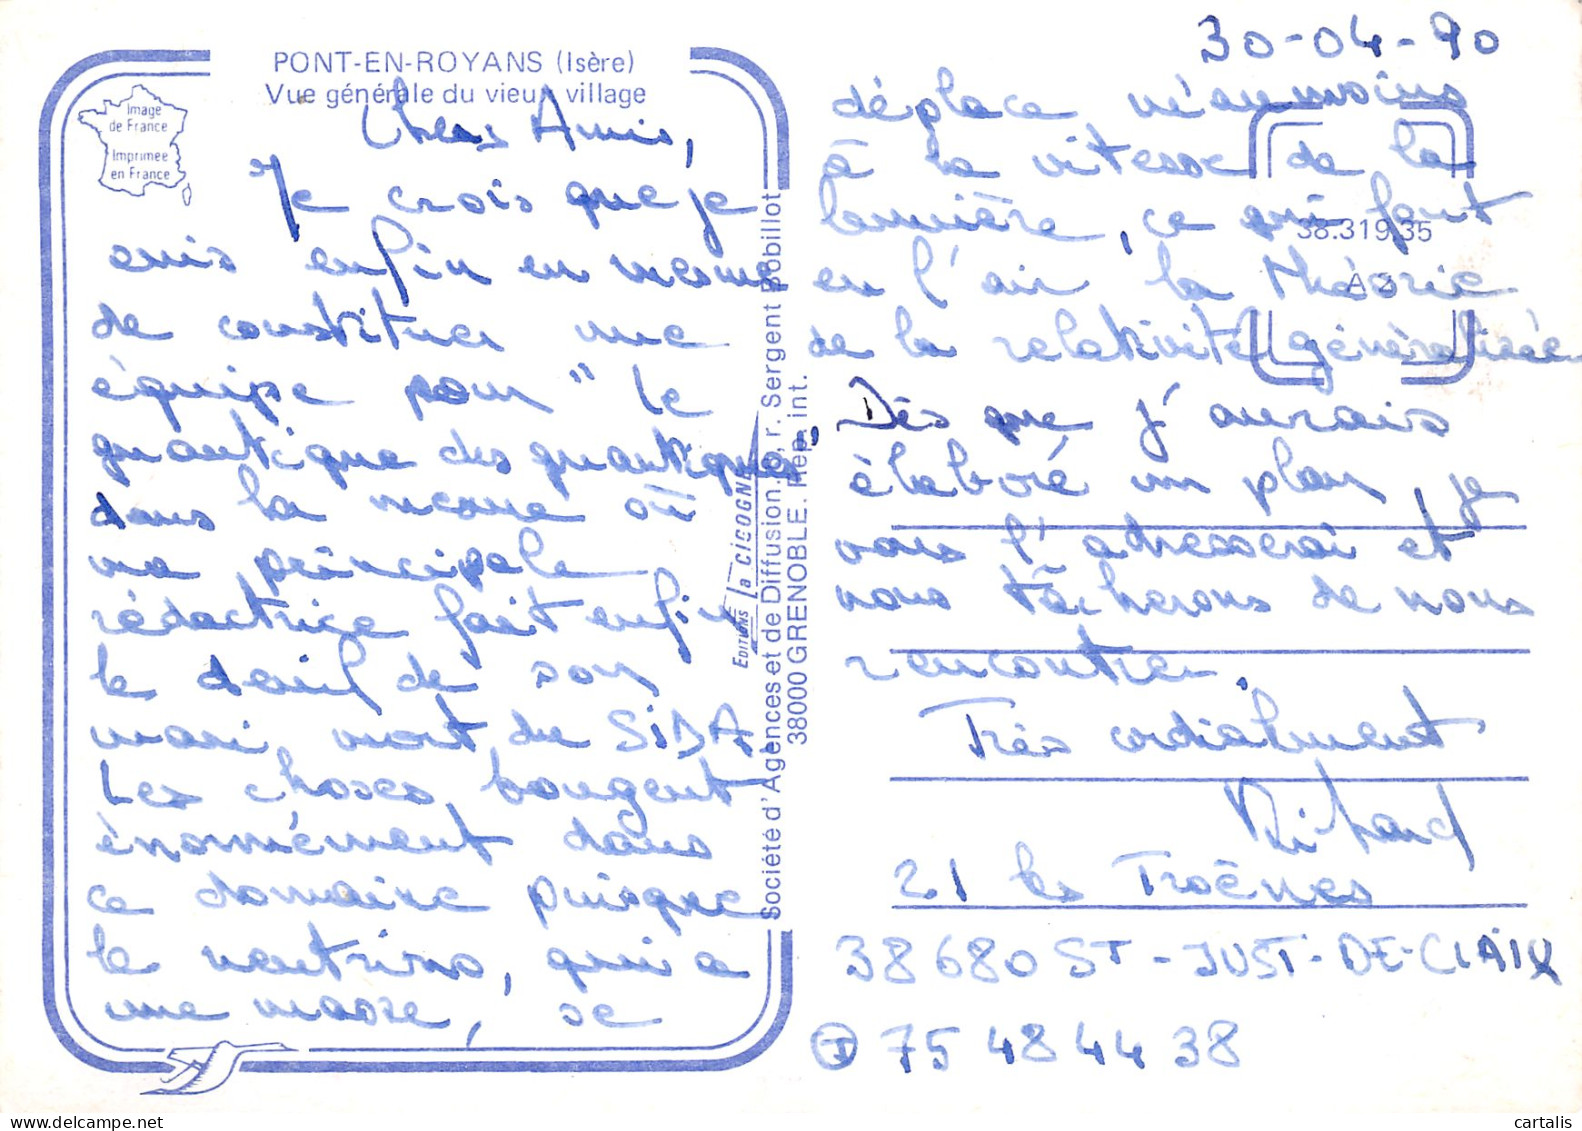 PONT-EN-ROYANS (Isère)
Vue générale du vieux village
Image
de France
Imprimée
en France
Chers Amis,
Je crois que je
suis enfin en mesure
de constituer une
équipe pour "le
quantique des quantiques"
dans la mesure où
ma principale
rédactrice fait enfin
le deuil de son
mari, mort du SIDA
Les choses bougent
énormément dans
ce domaine puisque
le neutrino, qui a
une masse, se
Editions la CIGOGNE
Société d'Agences et de Diffusion, r. Sergent Bobillot
38000 GRENOBLE. Rep. int.
30-04-90
déplace néanmoins
à la vitesse de la
lumière, ce qui fout
38.319.35
en l'air la théorie
de la relativité généralisée
Dès que j'aurais
élaboré un plan, je
vous l'adresserai et
nous tâcherons de nous
rencontrer.
Très cordialement
Richard
21 les Troènes
38680 ST-JUST-DE-CLAIX
75 48 44 38
cartalis